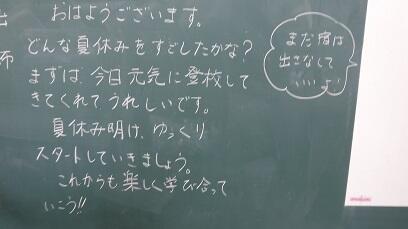 おはようございます。
どんな夏休みをすごしたかな?
まずは、今日元気に登校して
きてくれてうれしいです。
夏休み明け、ゆっくり
スタートしていきましょう。
これからも楽しく学び合って
いこう!!
まだ宿は
出さなくて
いいよ!